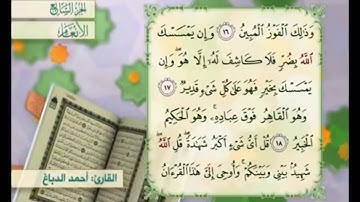 الجزء السابع
الأنعام
وَذَٰلِكَ ٱلْفَوْزُ ٱلْمُبِينُ ١٦ وَإِن يَمْسَسْكَ
ٱللَّهُ بِضُرٍّ فَلَا كَاشِفَ لَهُۥٓ إِلَّا هُوَ ۖ وَإِن
يَمْسَسْكَ بِخَيْرٍ فَهُوَ عَلَىٰ كُلِّ شَىْءٍ قَدِيرٌ ١٧
وَهُوَ ٱلْقَاهِرُ فَوْقَ عِبَادِهِۦ ۚ وَهُوَ ٱلْحَكِيمُ
ٱلْخَبِيرُ ١٨ قُلْ أَىُّ شَىْءٍ أَكْبَرُ شَهَٰدَةً ۖ قُلِ ٱللَّهُ ۖ
شَهِيدٌۢ بَيْنِى وَبَيْنَكُمْ ۚ وَأُوحِىَ إِلَىَّ هَٰذَا ٱلْقُرْءَانُ
القارئ: أحمد الدباغ